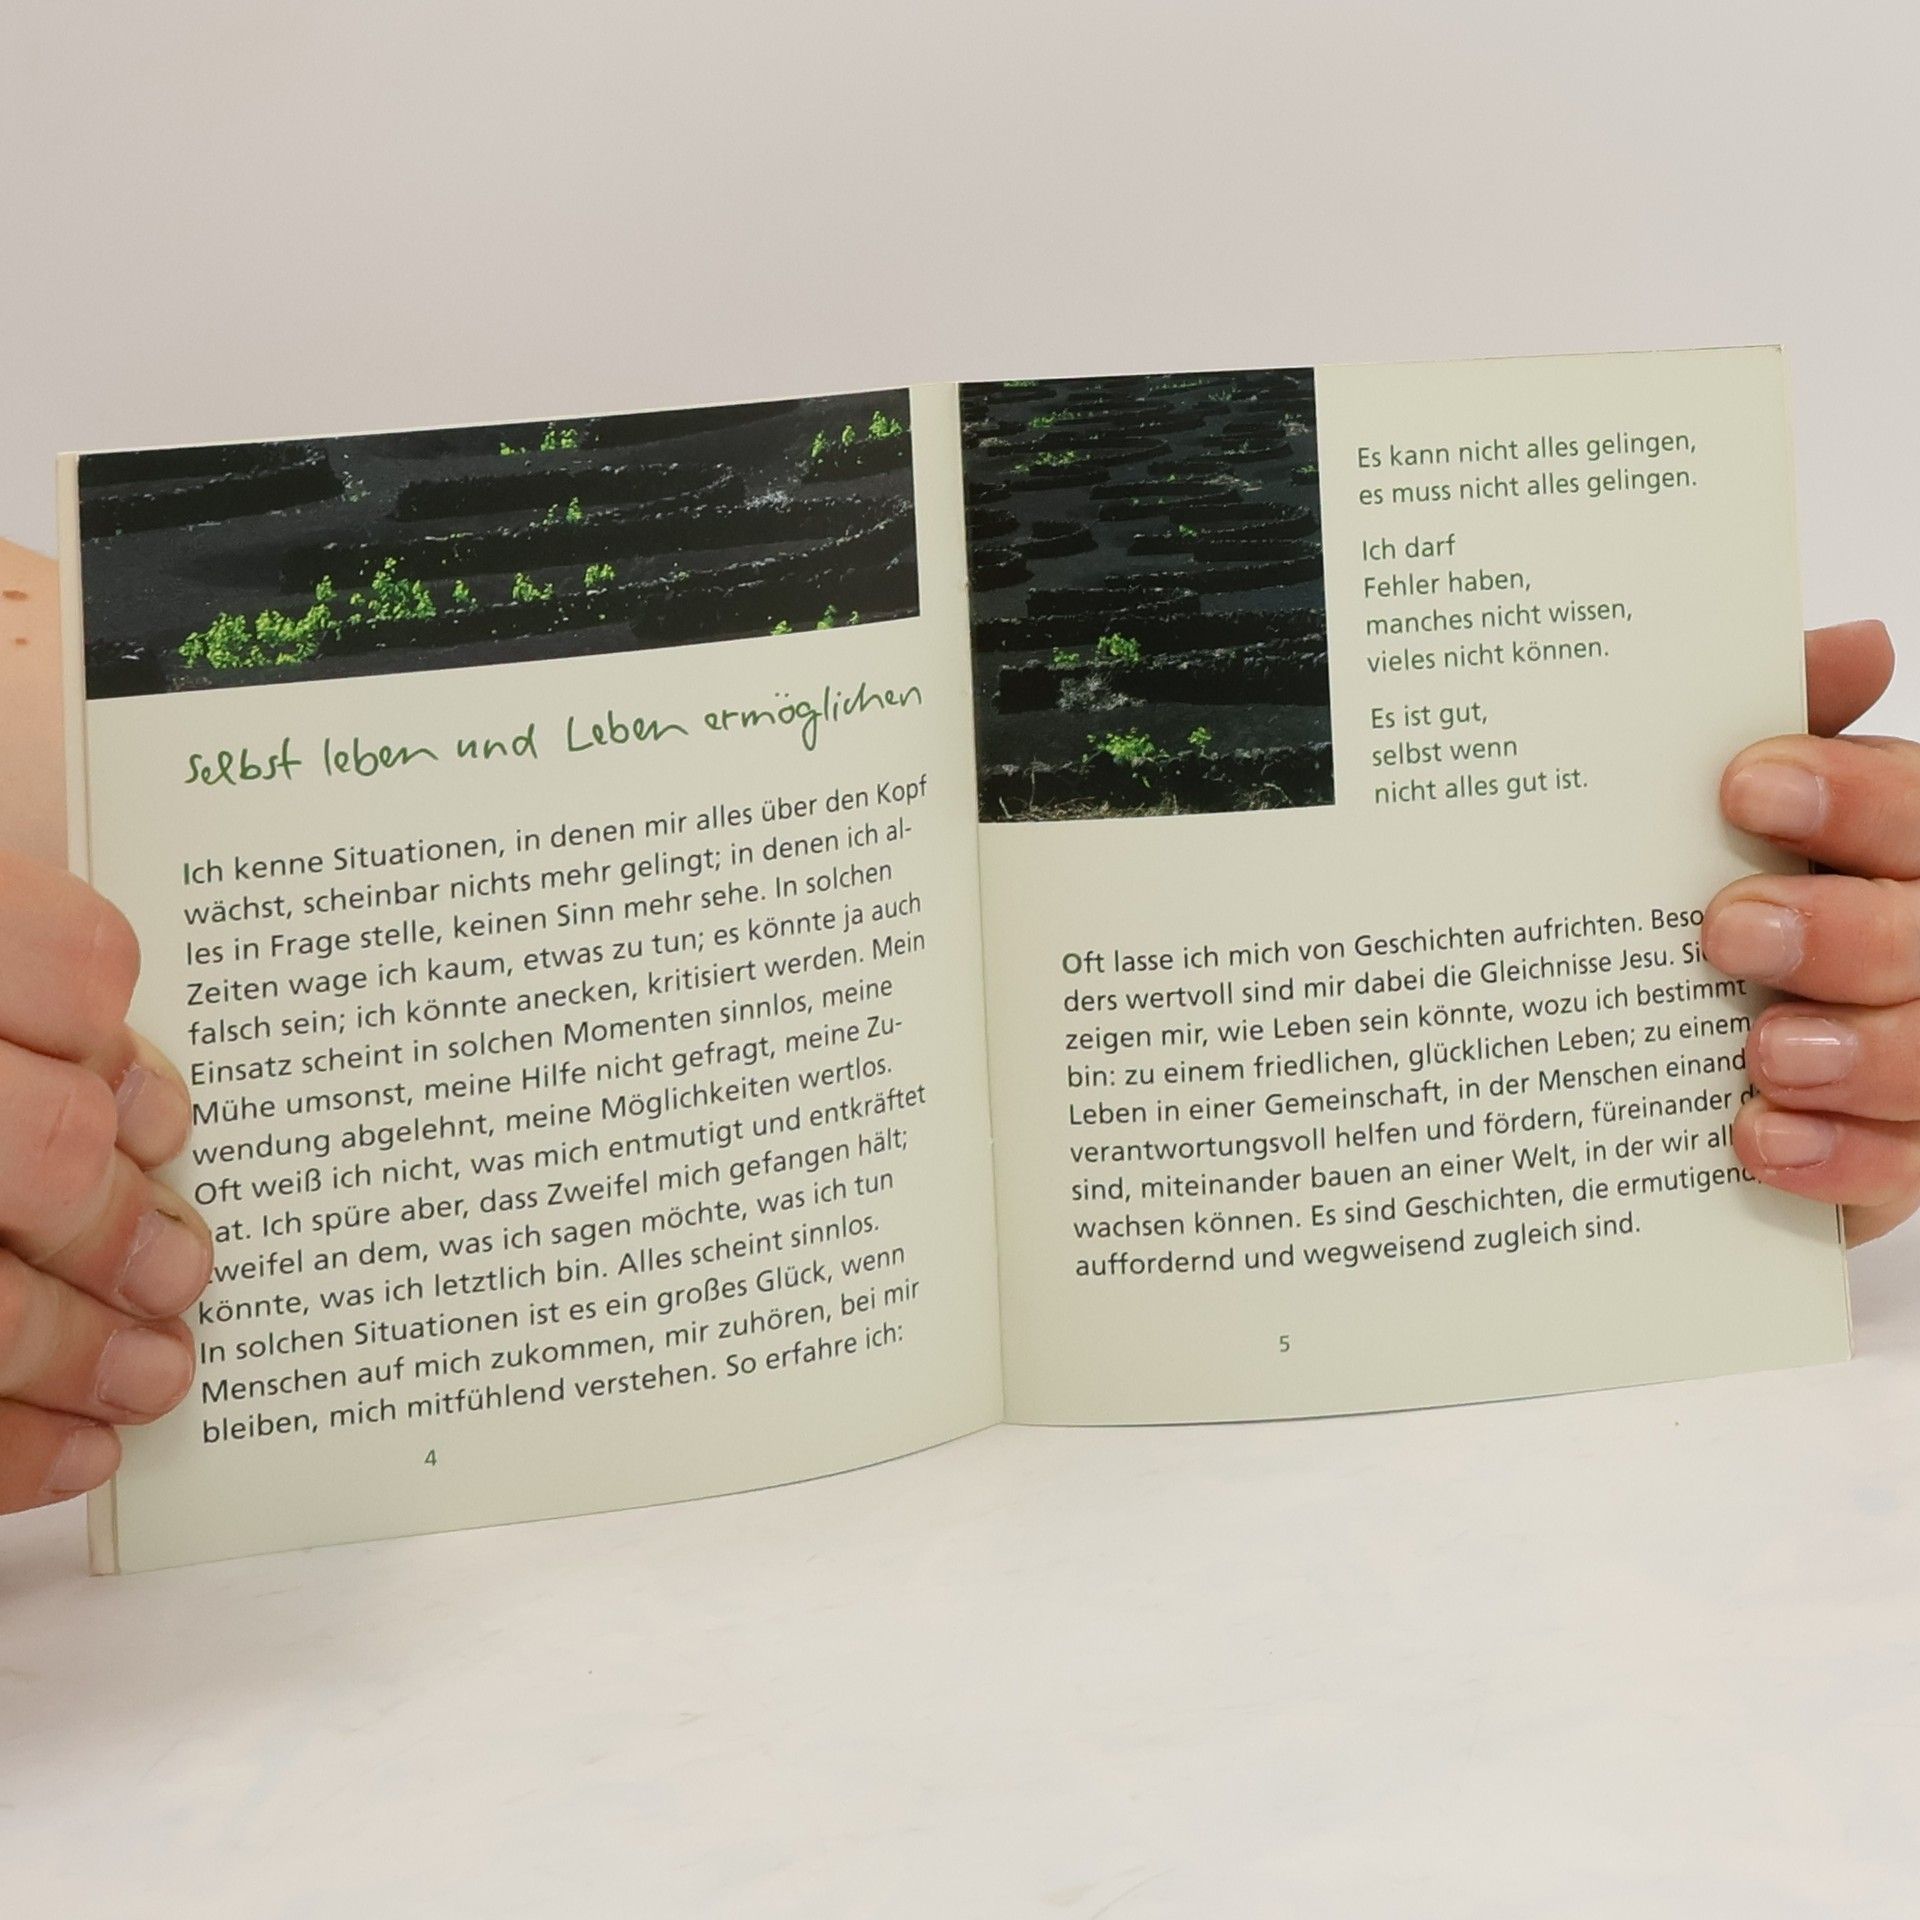 selbst leben und Leben ermöglichen
Ich kenne Situationen, in denen mir alles über den Kopf
wächst, scheinbar nichts mehr gelingt; in denen ich al-
les in Frage stelle, keinen Sinn mehr sehe. In solchen
Zeiten wage ich kaum, etwas zu tun; es könnte ja auch
falsch sein; ich könnte anecken, kritisiert werden. Mein
Einsatz scheint in solchen Momenten sinnlos, meine
Mühe umsonst, meine Hilfe nicht gefragt, meine Zu-
wendung abgelehnt, meine Möglichkeiten wertlos.
Oft weiß ich nicht, was mich entmutigt und entkräftet
at. Ich spüre aber, dass Zweifel mich gefangen hält;
weifel an dem, was ich sagen möchte, was ich tun
könnte, was ich letztlich bin. Alles scheint sinnlos.
In solchen Situationen ist es ein großes Glück, wenn
Menschen auf mich zukommen, mir zuhören, bei mir
bleiben, mich mitfühlend verstehen. So erfahre ich:
4
Es kann nicht alles gelingen,
es muss nicht alles gelingen.
Ich darf
Fehler haben,
manches nicht wissen,
vieles nicht können.
Es ist gut,
selbst wenn
nicht alles gut ist.
Oft lasse ich mich von Geschichten aufrichten. Beso
ders wertvoll sind mir dabei die Gleichnisse Jesu. Si
zeigen mir, wie Leben sein könnte, wozu ich bestimmt
bin: zu einem friedlichen, glücklichen Leben; zu einem
Leben in einer Gemeinschaft, in der Menschen einand
verantwortungsvoll helfen und fördern, füreinander d
sind, miteinander bauen an einer Welt, in der wir all
wachsen können. Es sind Geschichten, die ermutigend,
auffordernd und wegweisend zugleich sind.
5